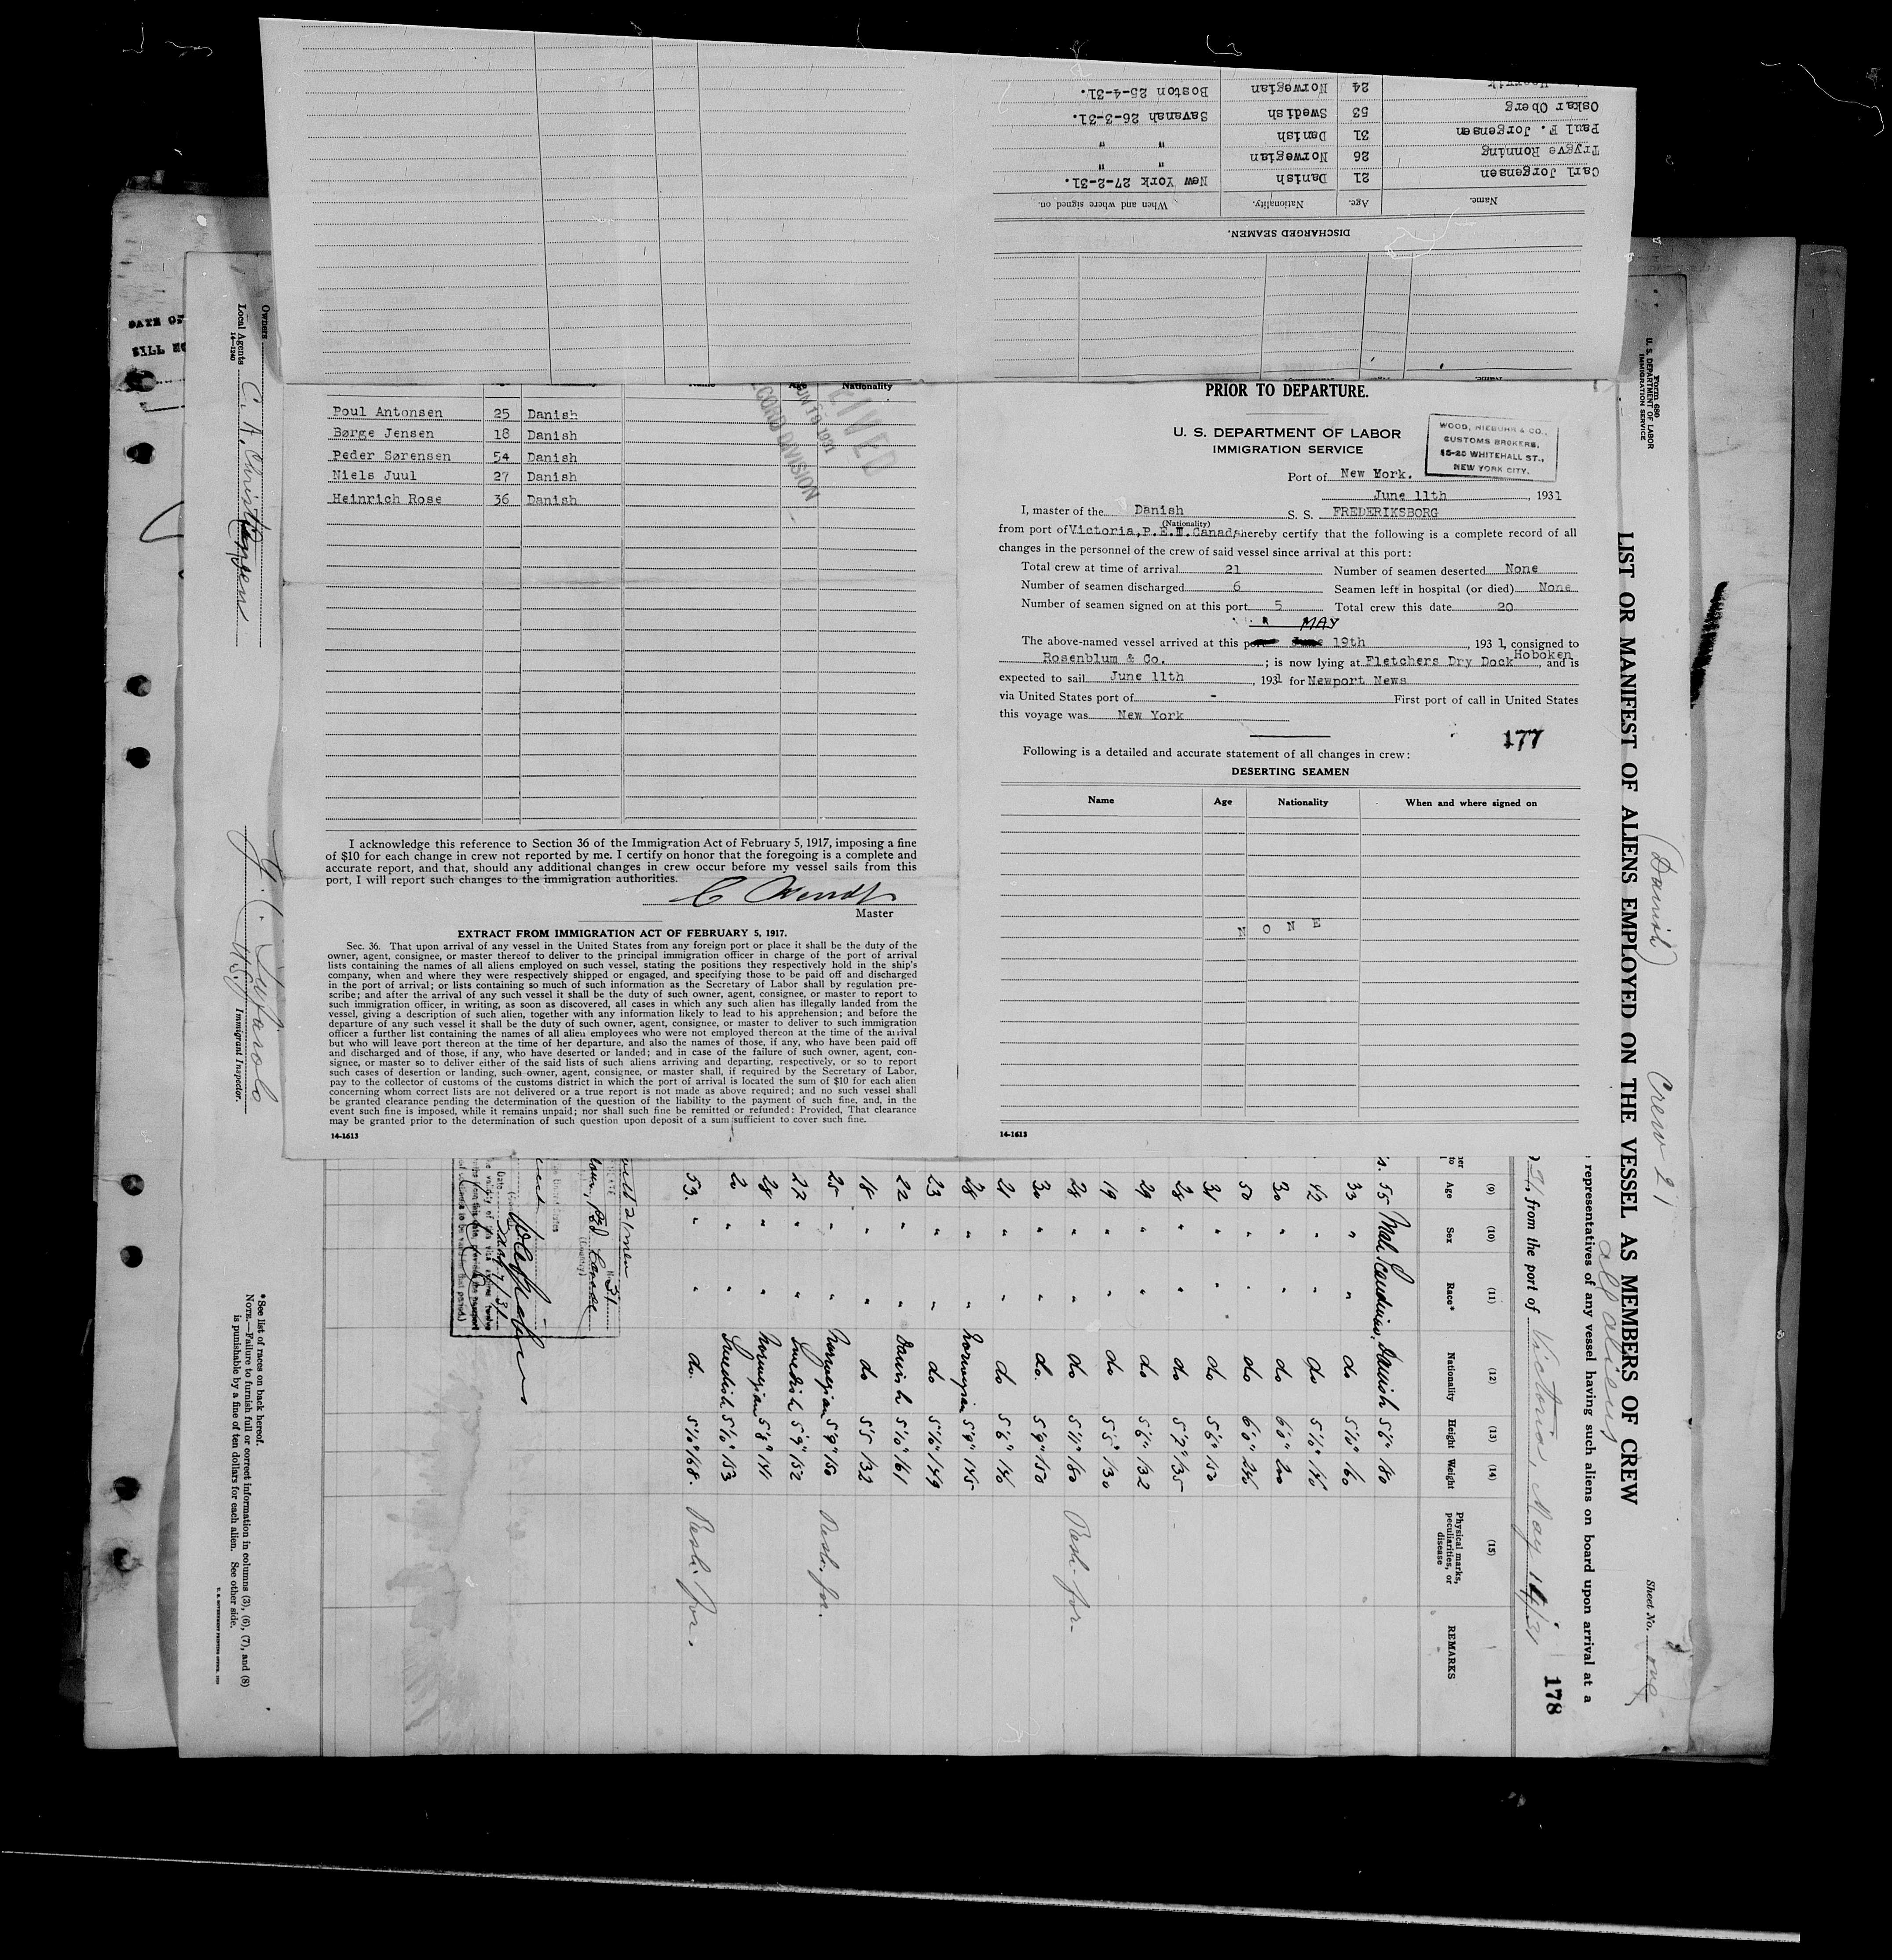 Carl Jorgensen 21 Danish New York 27-2-31.
Trygve Ronning 26 Norwegian " "
Paul F. Jorgensen 31 Danish " "
Oskar Oberg 53 Swedish Savanah 26-3-31.
24 Norwegian Boston 25-4-31.
Name. Age. Nationality. When and where signed on.
DISCHARGED SEAMEN.
DATE OF
Age Nationality
Poul Antonsen 25 Danish
Børge Jensen 18 Danish
Peder Sørensen 54 Danish
Niels Juul 27 Danish
Heinrich Rose 36 Danish
RECORD DIVISION
I acknowledge this reference to Section 36 of the Immigration Act of February 5, 1917, imposing a fine
of $10 for each change in crew not reported by me. I certify on honor that the foregoing is a complete and
accurate report, and that, should any additional changes in crew occur before my vessel sails from this
port, I will report such changes to the immigration authorities.
Master
EXTRACT FROM IMMIGRATION ACT OF FEBRUARY 5, 1917.
Sec. 36. That upon arrival of any vessel in the United States from any foreign port or place it shall be the duty of the
owner, agent, consignee, or master thereof to deliver to the principal immigration officer in charge of the port of arrival
lists containing the names of all aliens employed on such vessel, stating the positions they respectively hold in the ship's
company, when and where they were respectively shipped or engaged, and specifying those to be paid off and discharged
in the port of arrival; or lists containing so much of such information as the Secretary of Labor shall by regulation pre-
scribe; and after the arrival of any such vessel it shall be the duty of such owner, agent, consignee, or master to report to
such immigration officer, in writing, as soon as discovered, all cases in which any such alien has illegally landed from the
vessel, giving a description of such alien, together with any information likely to lead to his apprehension; and before the
departure of any such vessel it shall be the duty of such owner, agent, consignee, or master to deliver to such immigration
officer a further list containing the names of all alien employees who were not employed thereon at the time of the arrival
but who will leave port thereon at the time of her departure, and also the names of those, if any, who have been paid off
and discharged and of those, if any, who have deserted or landed; and in case of the failure of such owner, agent, con-
signee, or master so to deliver either of the said lists of such aliens arriving and departing, respectively, or so to report
such cases of desertion or landing, such owner, agent, consignee, or master shall, if required by the Secretary of Labor,
pay to the collector of customs of the customs district in which the port of arrival is located the sum of $10 for each alien
concerning whom correct lists are not delivered or a true report is not made as above required; and no such vessel shall
be granted clearance pending the determination of the question of the liability to the payment of such fine, and, in the
event such fine is imposed, while it remains unpaid; nor shall such fine be remitted or refunded: Provided, That clearance
may be granted prior to the determination of such question upon deposit of a sum sufficient to cover such fine.
14-1613
PRIOR TO DEPARTURE.
U. S. DEPARTMENT OF LABOR
IMMIGRATION SERVICE
WOOD, NIEBUHR & CO.,
CUSTOMS BROKERS,
15-25 WHITEHALL ST.,
NEW YORK CITY.
Port of New York.
June 11th, 1931
I, master of the Danish S. S. FREDERIKSBORG
(Nationality)
from port of Victoria, P.E.I. Canada, hereby certify that the following is a complete record of all
changes in the personnel of the crew of said vessel since arrival at this port:
Total crew at time of arrival 21 Number of seamen deserted None
Number of seamen discharged 6 Seamen left in hospital (or died) None
Number of seamen signed on at this port 5 Total crew this date 20
MAY
The above-named vessel arrived at this port June 19th, 1931, consigned to
Rosenblum & Co. ; is now lying at Fletchers Dry Dock Hoboken, and is
expected to sail June 11th, 1931 for Newport News
via United States port of - First port of call in United States
this voyage was New York
177
Following is a detailed and accurate statement of all changes in crew:
DESERTING SEAMEN
Name Age Nationality When and where signed on
NONE
14-1613
Form 680
U. S. DEPARTMENT OF LABOR
IMMIGRATION SERVICE
(Danish) Crew 21 Sheet No. one
all aliens
LIST OR MANIFEST OF ALIENS EMPLOYED ON THE VESSEL AS MEMBERS OF CREW
representatives of any vessel having such aliens on board upon arrival at a
from the port of Victoria, May 14/31
178
(9) (10) (11) (12) (13) (14) (15)
Age Sex Race* Nationality Height Weight Physical marks, peculiarities, or disease REMARKS
55 Male Scandinav. Danish 5'6" 180
33 " " do 5'10" 160
42 " " do 5'10"
30 " " do 6'0" 200
50 " " do 6'0"
31 " " do 5'6" 150
28 " " do 5'7" 135
29 " " do 5'6" 132
19 " " do 5'5" 130
28 " " do 5'11" 160
30 " " do. 5'9" 150
21 " " do 5'6" 146
28 " " Norwegian 5'9" 145
23 " " do 5'6" 149
22 " " Danish 5'10" 161
18 " " do 5'5 132
25 " " Norwegian 5'9" 150
27 " " Swedish 5'9" 152
28 " " Norwegian 5'8" 141
" " Swedish 5'10" 153
53. " " do. 5'10" 168.
Owners
Local Agents
14-1240
Immigrant Inspector.
*See list of races on back hereof.
NOTE.—Failure to furnish full or correct information in columns (3), (6), (7), and (8)
is punishable by a fine of ten dollars for each alien. See other side.